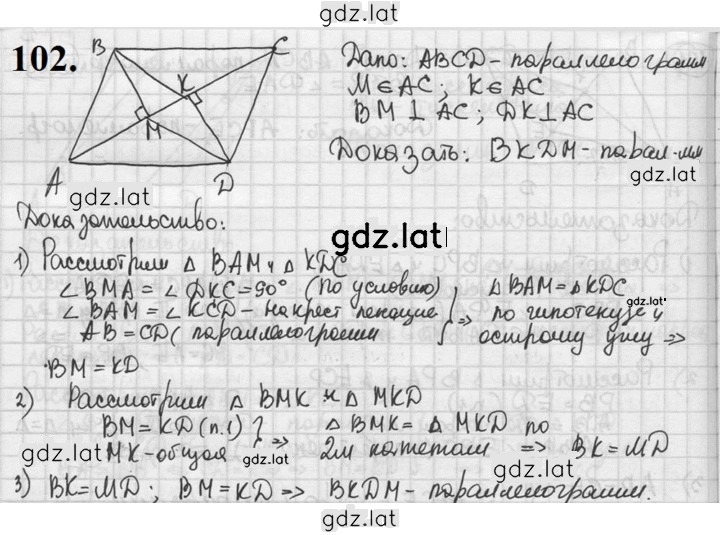 gdz.lat
102.
B C
K
M
A D
gdz.lat
Дано: ABCD - параллелограмм
M ∈ AC; K ∈ AC
BM ⊥ AC; DK ⊥ AC
Доказать: BKDM - парал-мм
gdz.lat
Доказательство:
gdz.lat
1) Рассмотрим △ BAM и △ KDC
∠BMA = ∠DKC = 90° (по условию)
∠BAM = ∠KCD - накрест лежащие
AB = CD (параллелограмм
} => △ BAM = △KDC
gdz.lat
по гипотенузе и
острому углу =>
BM = KD
2) Рассмотрим △ BMK и △ MKD
BM = KD (п.1)
MK - общая
} => △ BMK = △ MKD по
2м катетам => BK = MD
gdz.lat
gdz.lat
gdz.lat
3) BK = MD; BM = KD => BKDM - параллелограмм.
gdz.lat